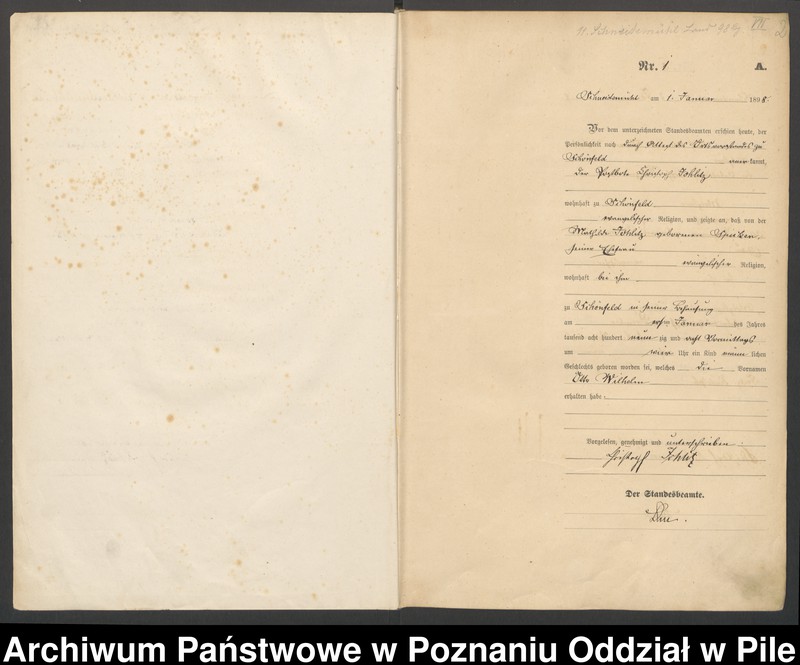 Nr. 1
A.
Schneidemühl am 1. Januar 1898.
Vor dem unterzeichneten Standesbeamten erschien heute, der
Persönlichkeit nach durch Attest des Ortsvorstandes zu
Schönfeld anerkannt,
der Christoph
wohnhaft zu Schönfeld
evangelischer Religion, und zeigte an, daß von der
Mathilde geborenen
seiner Ehefrau
evangelischer Religion,
wohnhaft bei ihm
zu Schönfeld in seiner Behausung
am Januar des Jahres
tausend acht hundert neunzig und acht Vormittags
um Uhr ein Kind männlichen
Geschlechts geboren worden sei, welches die Vornamen
Otto Wilhelm
erhalten habe.
Vorgelesen, genehmigt und unterschrieben
Christoph
Der Standesbeamte.
Archiwum Państwowe w Poznaniu Oddział w Pile